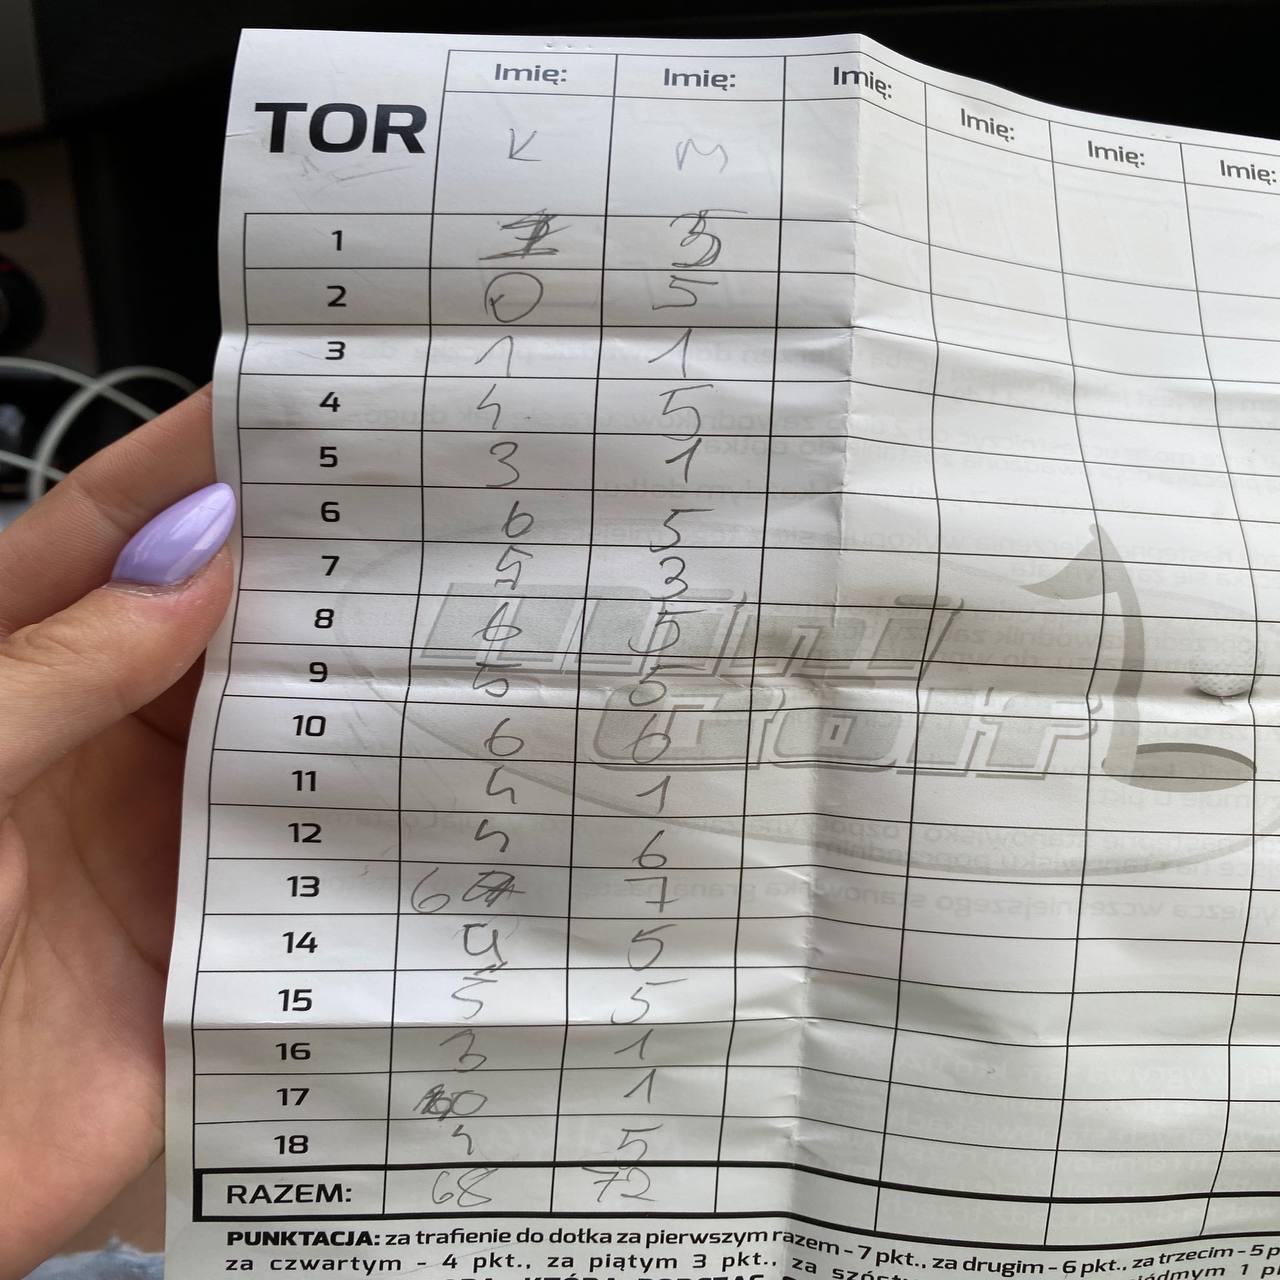 TOR Imię: Imię: Imię: Imię: Imię: Imię:
K M
1 3
2 0 5
3 1 1
4 4 5
5 3 1
6 6 5
7 5 3
8 6 5
9 5 5
10 6 6
11 4 1
12 4 6
13 6 7
14 4 5
15 5 5
16 3 1
17 0 1
18 4 5
RAZEM: 68 72
MINI
GOLF
PUNKTACJA: za trafienie do dołka za pierwszym razem - 7 pkt., za drugim - 6 pkt., za trzecim - 5 p
za czwartym - 4 pkt., za piątym 3 pkt., za